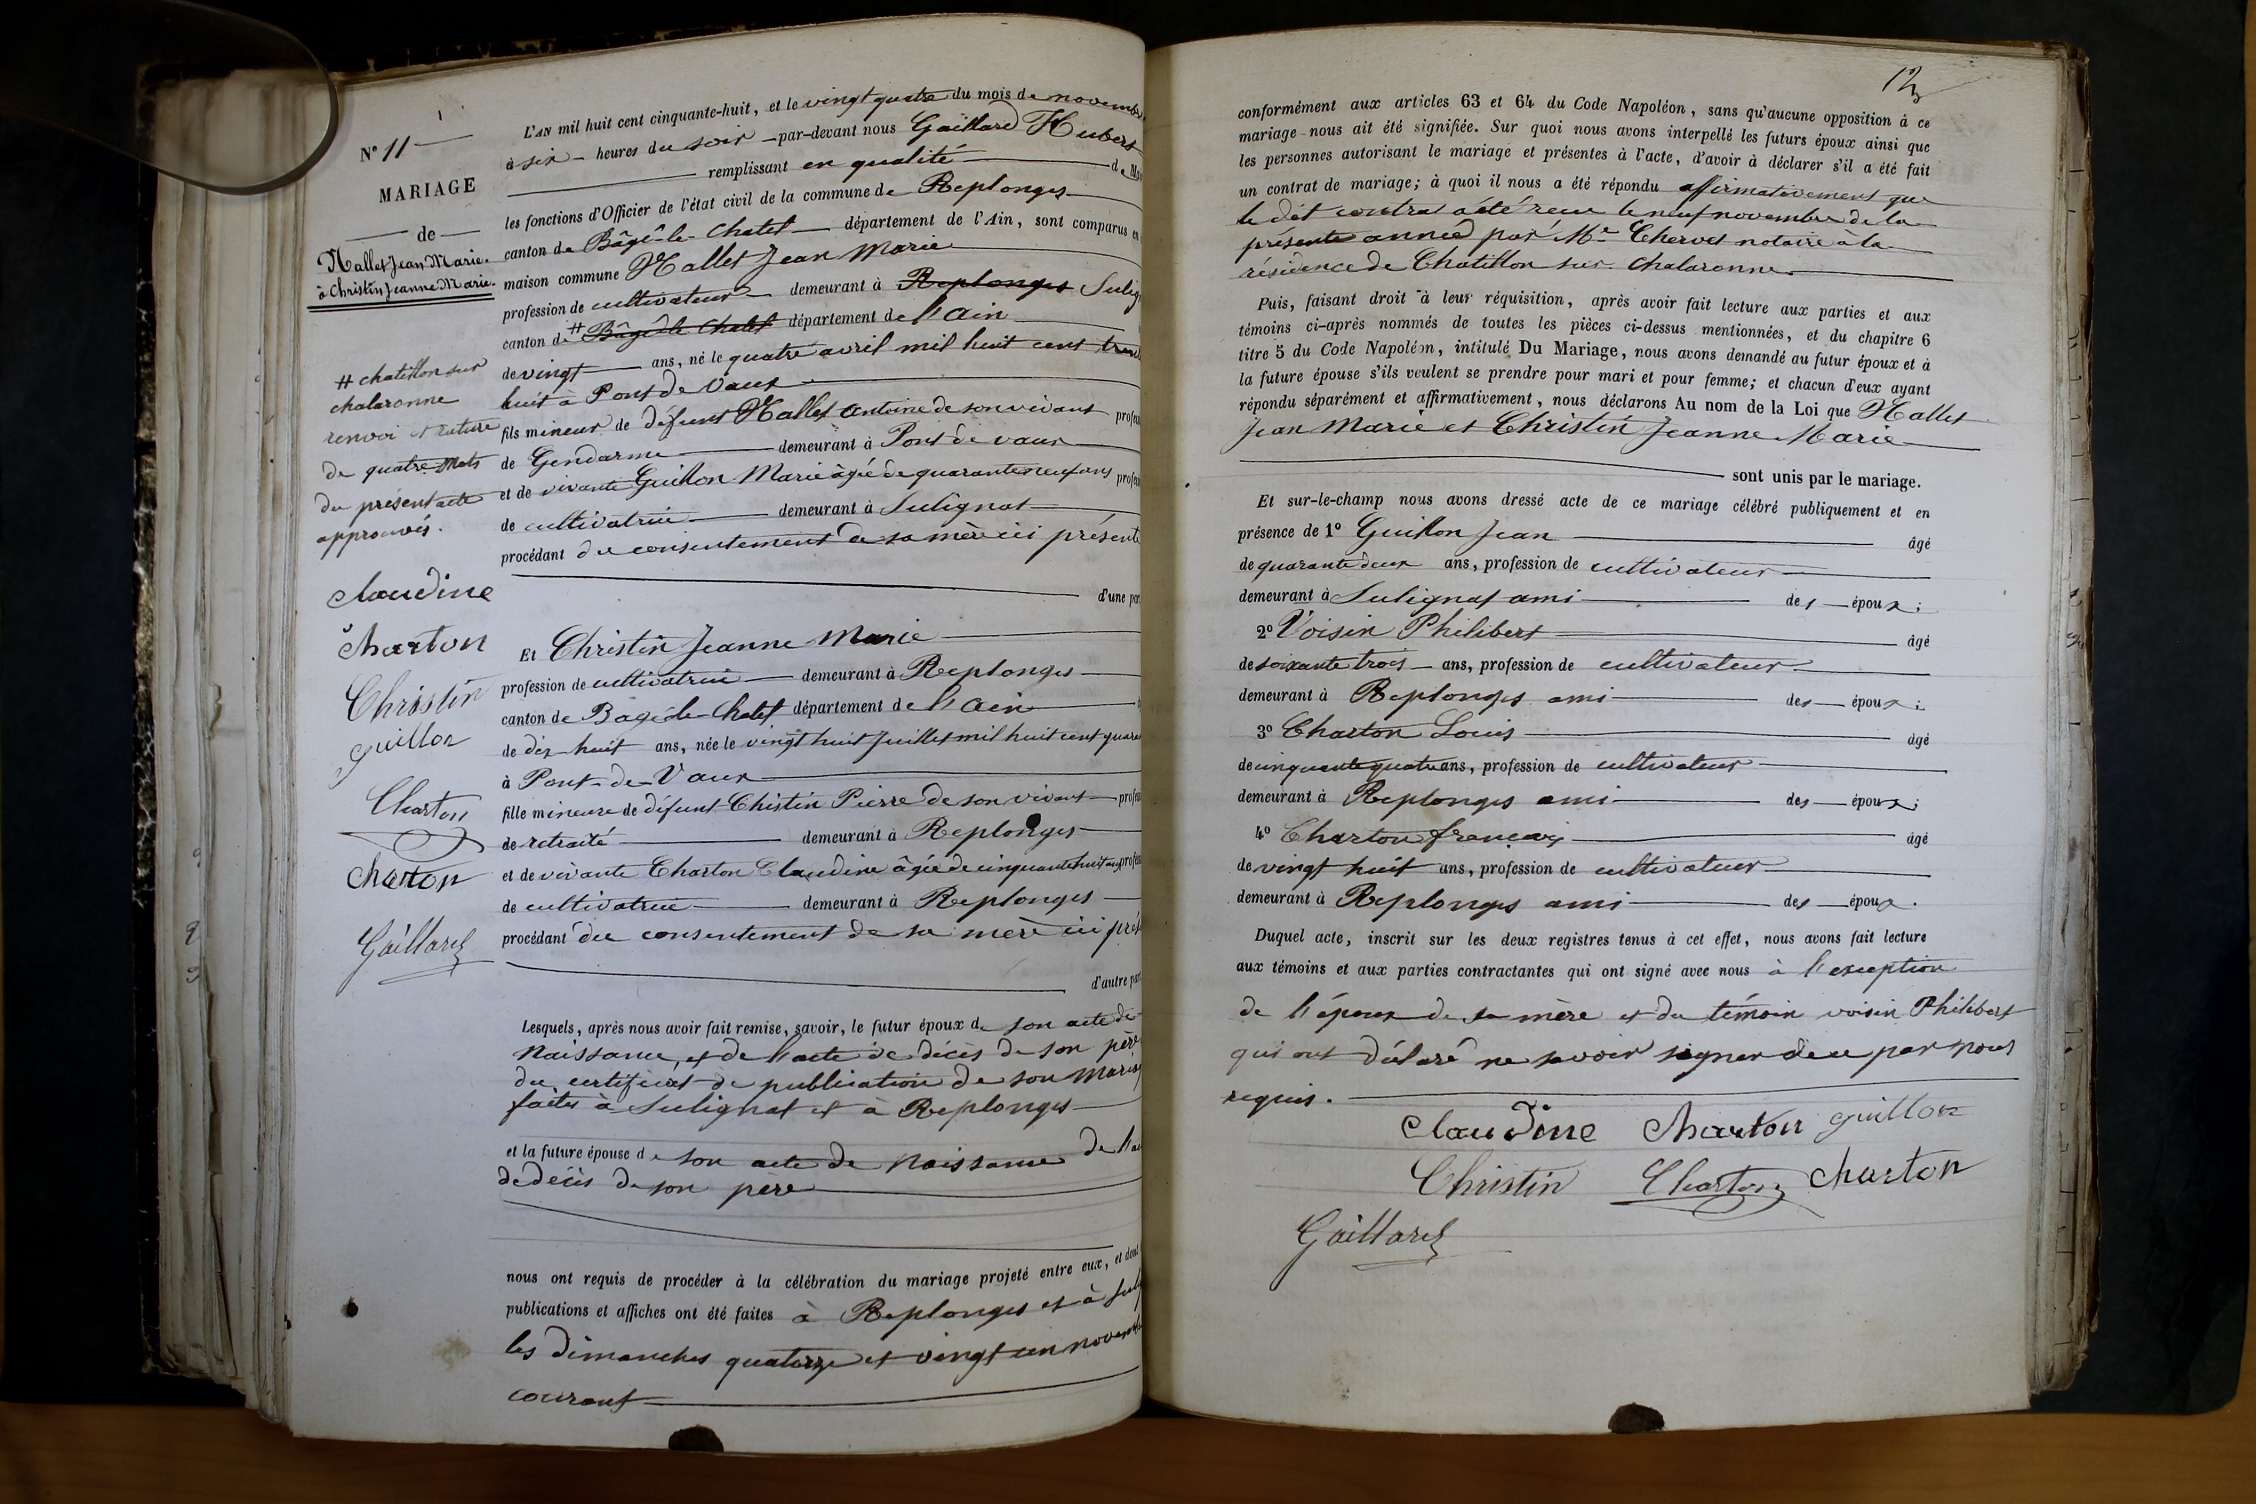 N° 11
MARIAGE
de
Hallet Jean Marie
à Christin Jeanne Marie.
# chatillon sur
chalaronne
renvoi et rature
de quatre mots
du présent acte
approuvés.
Claudine
Charton
Christin
guillon
Charton
charton
Gaillard
L'AN mil huit cent cinquante-huit, et le vingt quatre du mois de novembre
à six heures du soir par-devant nous Gaillard Hubert
remplissant en qualité de
les fonctions d'Officier de l'état civil de la commune de Replonges
canton de Bâgé-le-Chatel département de l'Ain, sont comparus en
maison commune Hallet Jean Marie
profession de cultivateur demeurant à Replonges
canton de # Bâgé le Chatel département de l'Ain
de vingt ans, né le quatre avril mil huit cent
huit à Pont de Vaux
fils mineur de défunt Hallet Antoine de son vivant
de Gendarme demeurant à Pont de vaux
et de vivante Guillon Marie âgée de quarante neuf ans
de cultivatrice demeurant à Sulignat
procédant du consentement de sa mère ici présente
d'une
Et Christin Jeanne Marie
profession de cultivatrice demeurant à Replonges
canton de Bâgé-le-Chatel département de l'Ain
de dix-huit ans, née le vingt huit Juillet mil huit cent
à Pont-de-Vaux
fille mineure de défunt Chistin Pierre de son vivant
de retraité demeurant à Replonges
et de vivante Charton Claudine âgée de cinquante huit ans
de cultivatrice demeurant à Replonges
procédant du consentement de sa mère ici
d'autre
Lesquels, après nous avoir fait remise, savoir, le futur époux de son acte de
Naissance, et de l'acte de décès de son père
du certificat de publication de son
faites à Sulignat et à Replonges
et la future épouse de son acte de Naissance de
de décès de son père
nous ont requis de procéder à la célébration du mariage projeté entre eux, et dont
publications et affiches ont été faites à Replonges et à
les dimanches quatorze et vingt un novembre
courant
12
conformément aux articles 63 et 64 du Code Napoléon, sans qu'aucune opposition à ce
mariage nous ait été signifiée. Sur quoi nous avons interpellé les futurs époux ainsi que
les personnes autorisant le mariage et présentes à l'acte, d'avoir à déclarer s'il a été fait
un contrat de mariage; à quoi il nous a été répondu affirmativement que
le dit contrat a été reçu le neuf novembre de la
présente année par Me notaire à la
résidence de Chatillon sur Chalaronne.
Puis, faisant droit à leur réquisition, après avoir fait lecture aux parties et aux
témoins ci-après nommés de toutes les pièces ci-dessus mentionnées, et du chapitre 6
titre 5 du Code Napoléon, intitulé Du Mariage, nous avons demandé au futur époux et à
la future épouse s'ils veulent se prendre pour mari et pour femme; et chacun d'eux ayant
répondu séparément et affirmativement, nous déclarons Au nom de la Loi que Hallet
Jean Marie et Christin Jeanne Marie
sont unis par le mariage.
Et sur-le-champ nous avons dressé acte de ce mariage célébré publiquement et en
présence de 1° Guillon Jean âgé
de quarante deux ans, profession de cultivateur
demeurant à Sulignat ami des époux;
2° Voisin Philibert âgé
de soixante trois ans, profession de cultivateur
demeurant à Replonges ami des époux;
3° Charton Louis âgé
de cinquante quatre ans, profession de cultivateur
demeurant à Replonges ami des époux;
4° Charton françois âgé
de vingt huit ans, profession de cultivateur
demeurant à Replonges ami des époux.
Duquel acte, inscrit sur les deux registres tenus à cet effet, nous avons fait lecture
aux témoins et aux parties contractantes qui ont signé avec nous à l'exception
de l'époux de sa mère et du témoin voisin Philibert
qui ont déclaré ne savoir signer de ce par nous
requis.
Claudine Charton guillon
Christin Charton charton
Gaillard